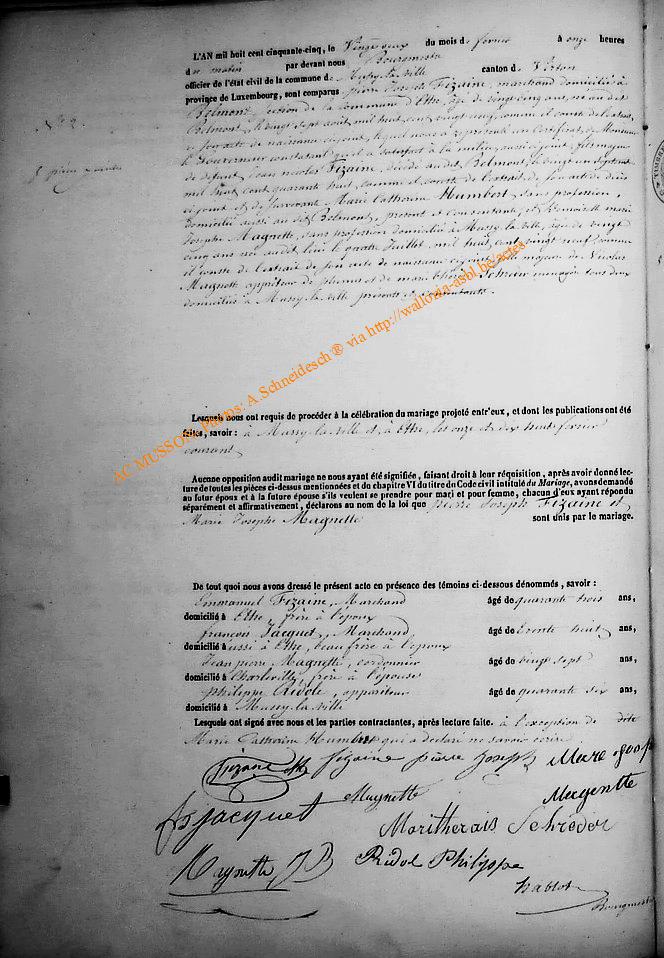 L'AN mil huit cent cinquante-cinq, le Vingt deux du mois de février à onze heures
du matin par devant nous Bourgmestre
officier de l'état civil de la commune de Mussy-la-Ville canton de Virton
province de Luxembourg, sont comparus pierre Joseph Fizaine, marchand domicilié à
Belmont, section de la commune d'Ethe, âgé de vingt cinq ans, né au dit
Belmont, le vingt sept août, mil huit cent vingt neuf, comme il conste de l'extrait
de son acte de naissance ci-joint, lequel nous a représenté un Certificat de Monsieur
le Gouverneur constatant qu'il a satisfait à la milice, aussi ci-joint, fils majeur
de défunt jean nicolas Fizaine, décédé au dit Belmont, le vingt un
mil huit cent quarante huit, comme il conste de l'extrait de son acte de décès
ci-joint et de survivante Marie Catherine Humbert, sans profession,
domiciliée aussi au dit Belmont, présent et consentante, et Demoiselle marie
Josephe Magnette, sans profession domiciliée à Mussy-la-Ville, âgée de vingt
cinq ans née audit lieu le quatre Juillet, mil huit cent vingt neuf comme
il conste de l'extrait de son acte de naissance ci-joint, fille majeure de Nicolas
Magnette, et de marie Schreder ménagère tous deux
domiciliés à Mussy-la-Ville présents et consentants.
N° 2.
5 pièces jointes
Lesquels nous ont requis de procéder à la célébration du mariage projeté entr'eux, et dont les publications ont été
faites, savoir : à Mussy-la-Ville et à Ethe, les onze et dix huit février
courant
Aucune opposition audit mariage ne nous ayant été signifiée, faisant droit à leur réquisition, après avoir donné lec-
ture de toutes les pièces ci-dessus mentionnées et du chapitre VI du titre du Code civil intitulé du Mariage, avons demandé
au futur époux et à la future épouse s'ils veulent se prendre pour mari et pour femme, chacun d'eux ayant répondu
séparément et affirmativement, déclarons au nom de la loi que pierre Joseph Fizaine et
Marie Josephe Magnette sont unis par le mariage.
De tout quoi nous avons dressé le présent acte en présence des témoins ci-dessous dénommés, savoir :
Emmanuel Fizaine, Marchand âgé de quarante trois ans,
domicilié à Ethe, frère à l'époux
françois Jacquet, Marchand âgé de trente huit ans,
domicilié aussi à Ethe, beau frère à l'époux
Jean pierre Magnette, cordonnier âgé de vingt sept ans,
domicilié à Charleville, frère à l'épouse
philippe Ridole, appariteur âgé de quarante six ans,
domicilié à Mussy-la-Ville
Lesquels ont signé avec nous et les parties contractantes, après lecture faite. à l'exception de dite
Marie Catherine Humbert qui a déclaré ne savoir écrire
Fizaine fizaine pierre joseph Marie
Jacquet Magnette Magentte
Schreder
Magnette JB Ridol Philippe
hablot
Bourgmestre
AC MUSSON, Photos: A.Schneidesch ® via http://wallonia-asbl.be/actes